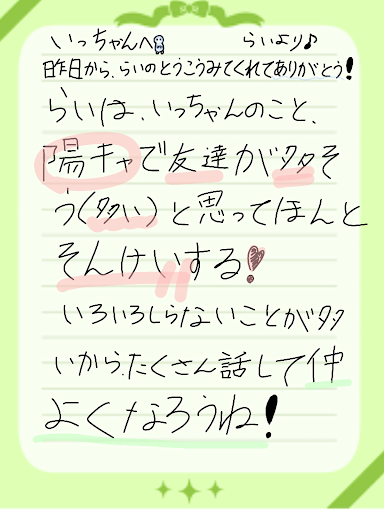 いっちゃんへ らいより♪
昨日から、らいのとうこうみてくれてありがとう!
らいは、いっちゃんのこと、
陽キャで友達が多そ
う(多い)と思ってほんと
そんけいする!
いろいろしらないことが多
いから、たくさん話して仲
よくなろうね!